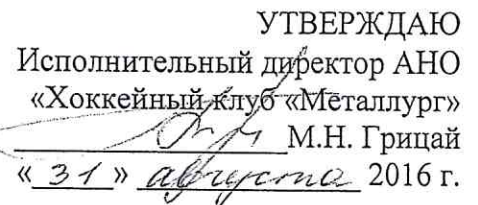 УТВЕРЖДАЮ
Исполнительный директор АНО
«Хоккейный клуб «Металлург»
М.Н. Грицай
« 31 » августа 2016 г.